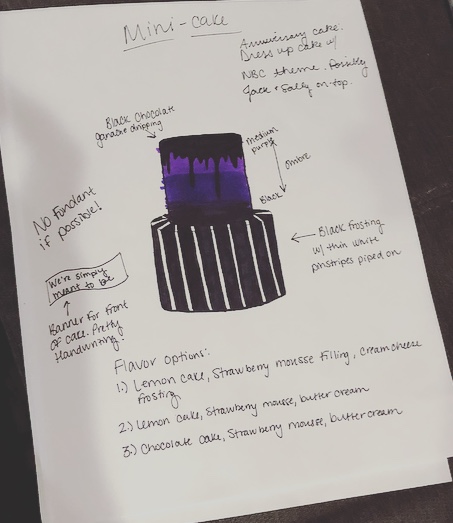 Mini-cake
Anniversary cake.
Dress up cake w/
NBC theme. Possibly
Jack & Sally on top.
Black Chocolate
ganache dripping
medium
purple
ombre
Black
No fondant
if possible!
We're simply
meant to be
Banner for front
of cake. Pretty
Handwriting.
Black frosting
w/ thin white
pinstripes piped on
Flavor options:
1.) Lemon cake, Strawberry mousse filling, cream cheese
frosting
2.) Lemon cake, Strawberry mousse, butter cream
3.) Chocolate cake, Strawberry mousse, butter cream